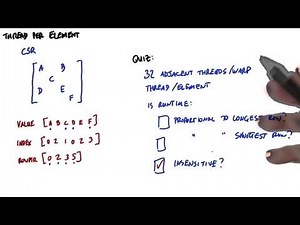 THREAD PER ELEMENT
CSR
A B
C
D E
F
VALUE [A B C D E F]
INDEX [0 2 1 0 2 3]
ROWPTR [0 2 3 5]
QUIZ:
32 ADJACENT THREADS/WARP
THREAD/ELEMENT
IS RUNTIME:
PROPORTIONAL TO LONGEST ROW?
" " SHORTEST ROW?
INSENSITIVE?